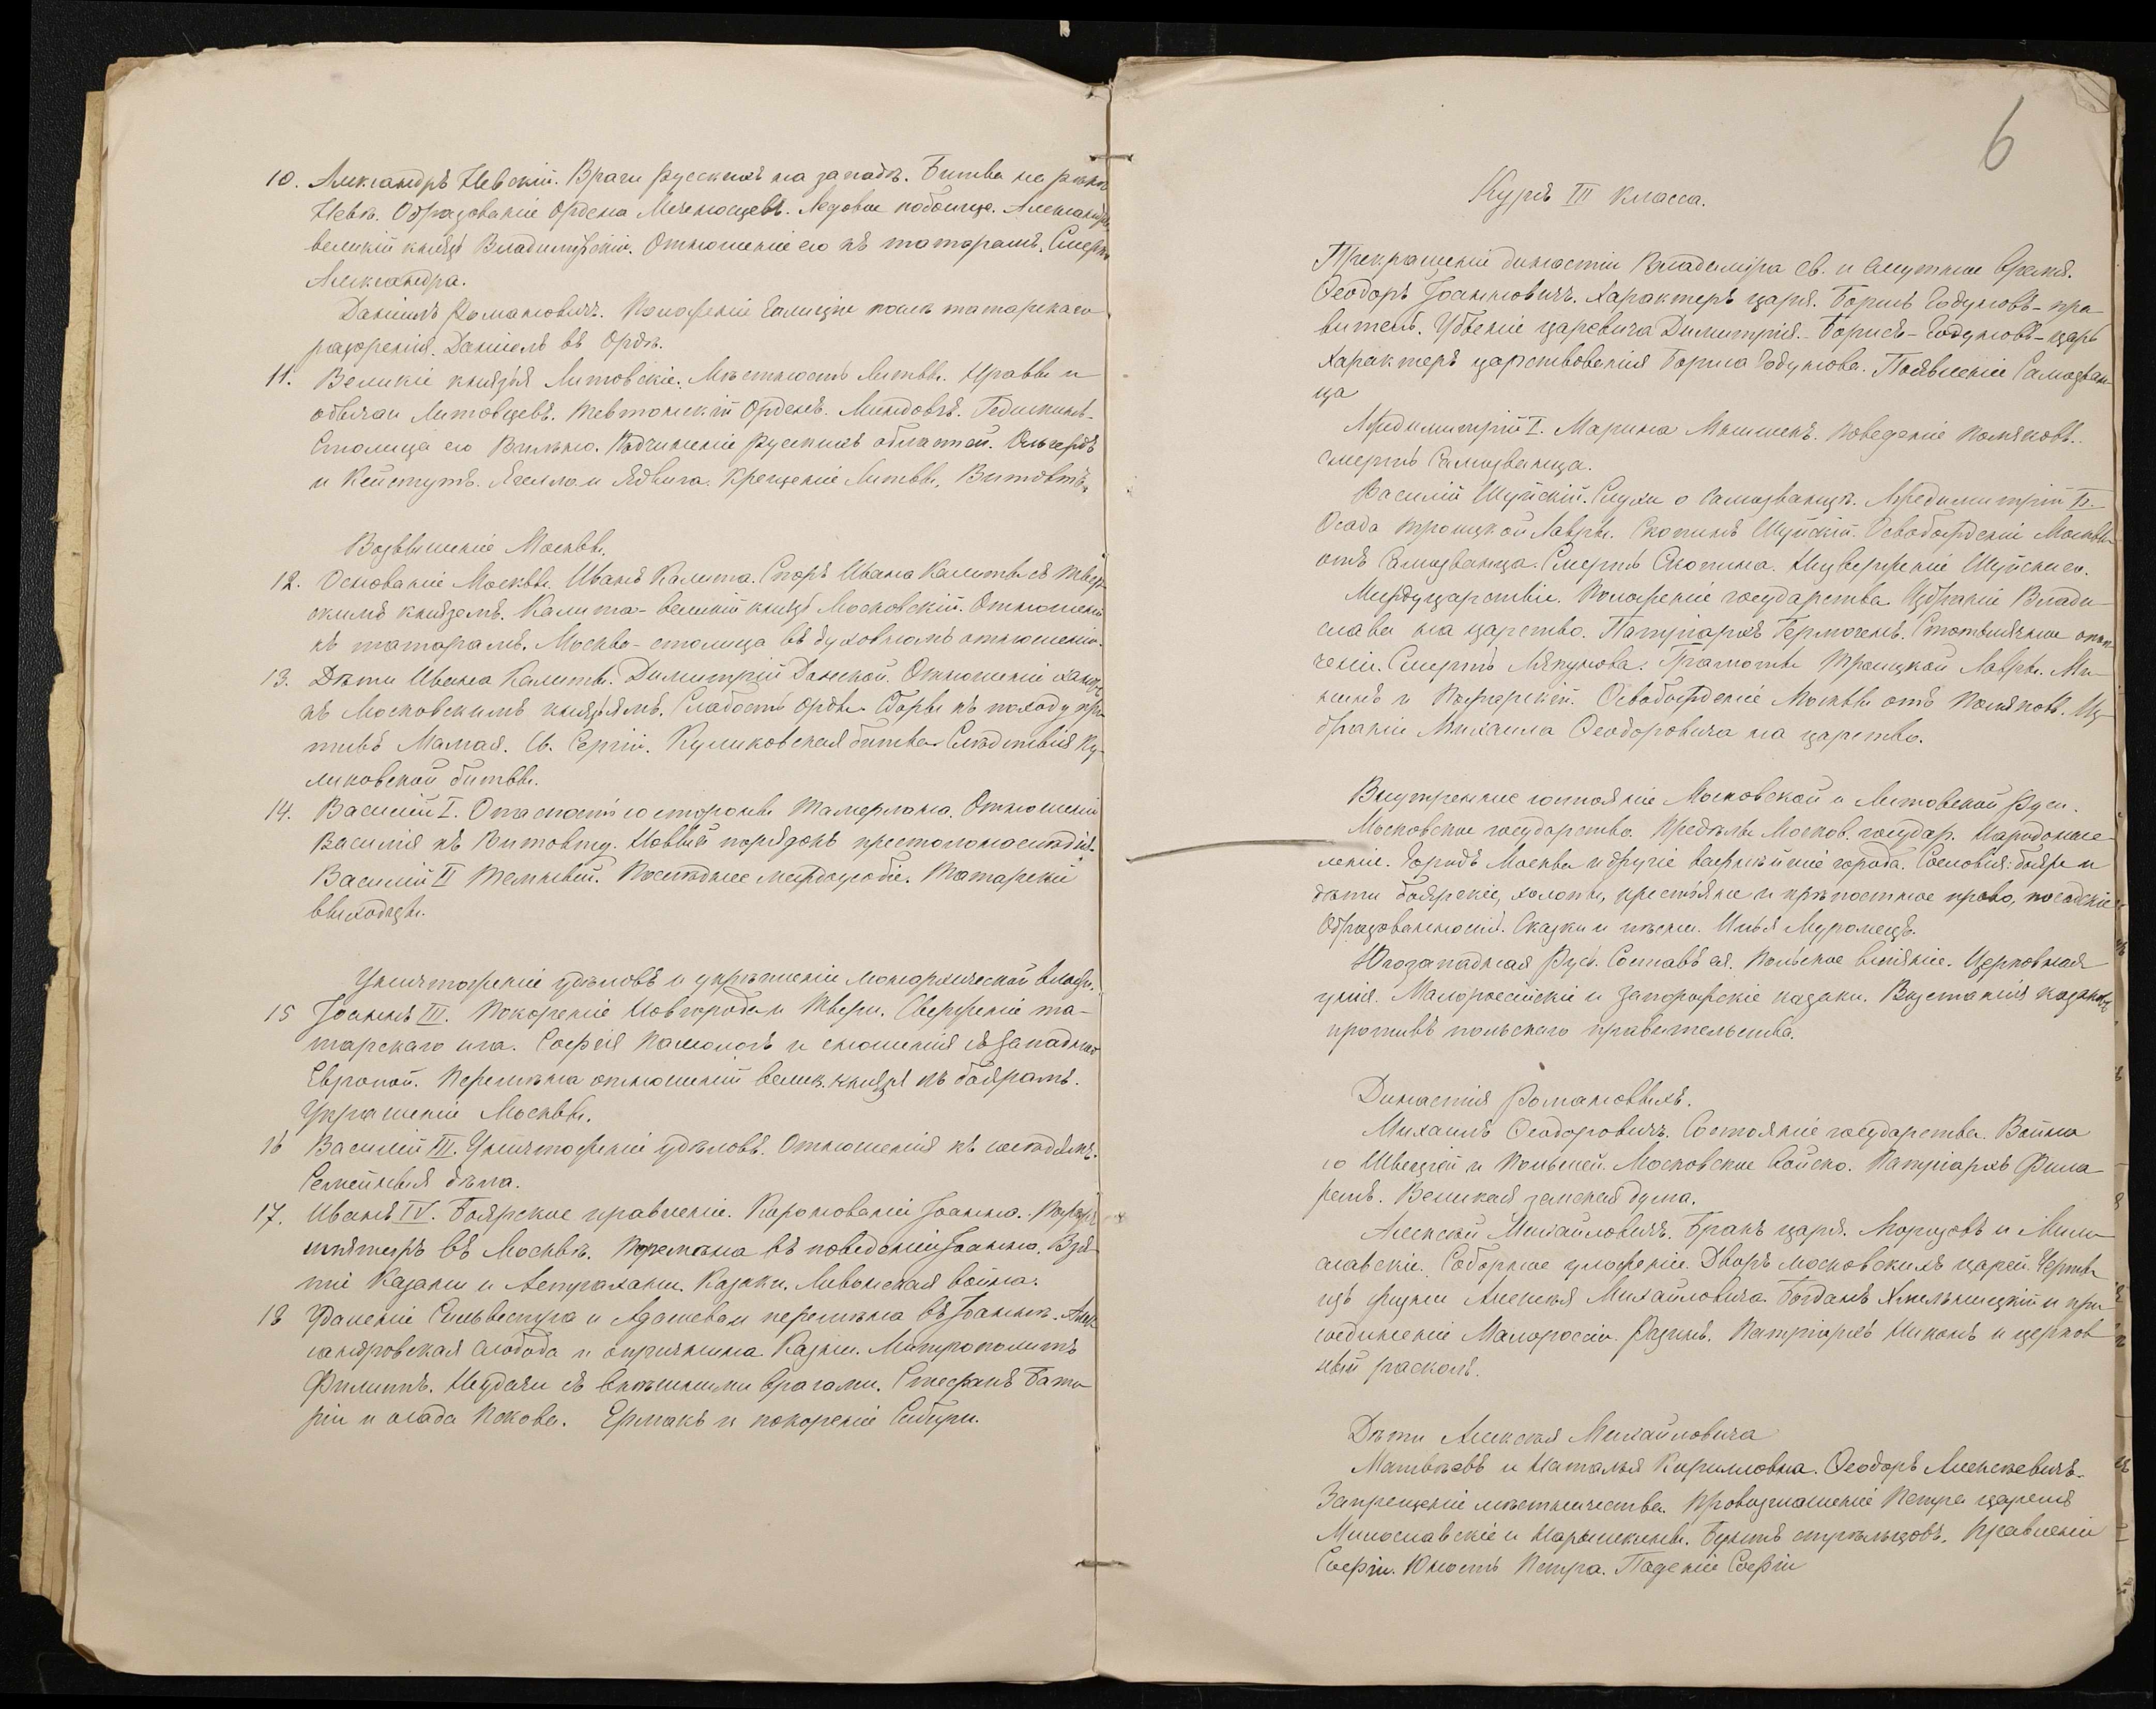 10. Александръ Невскій. Враги русскихъ на западѣ. Битва на рѣкѣ
Невѣ. Образованіе Ордена Меченосцевъ. Ледовое побоище. Александръ
великій князь Владимірскій. Отношеніе его къ татарамъ. Смерть
Александра.
Даніилъ Романовичъ. Положеніе Галиціи послѣ татарскаго
разоренія. Даніилъ въ Ордѣ.
11. Великіе князья Литовскіе. Мѣстность Литвы. Нравы и
обычаи Литовцевъ. Тевтонскій Орденъ. Миндовгъ. Гедиминъ-
Столица его Вильно. Подчиненіе русскихъ областей. Ольгердъ
и Кейстутъ. Ягелло и Ядвига. Крещеніе Литвы. Витовтъ.
Возвышеніе Москвы.
12. Основаніе Москвы. Иванъ Калита. Споръ Ивана Калиты съ Твер-
скимъ княземъ. Калита - великій князь Московскій. Отношеніе
къ татарамъ. Москва - столица въ духовномъ отношеніи.
13. Дѣти Ивана Калиты. Димитрій Донской. Отношеніе хановъ
къ Московскимъ князьямъ. Слабость орды. Сборы къ походу про-
тивъ Мамая. Св. Сергій. Куликовская битва. Слѣдствія Ку-
ликовской битвы.
14. Василій I. Опасность со стороны Тамерлана. Отношеніе
Василія къ Витовту. Новый порядокъ престолонаслѣдія.
Василій II Темный. Послѣднее междоусобіе. Татарскіе
выходцы.
Уничтоженіе удѣловъ и укрѣпленіе монархической власти.
15 Іоаннъ III. Покореніе Новгорода и Твери. Сверженіе та-
тарскаго ига. Софія Палеологъ и сношенія съ Западною
Европой. Перемѣна отношеній велик. князя къ боярамъ.
Украшеніе Москвы.
16 Василій III. Уничтоженіе удѣловъ. Отношенія къ сосѣдямъ.
Семейныя дѣла.
17. Иванъ IV. Боярское правленіе. Коронованіе Іоанна. Пожаръ
мятежъ въ Москвѣ. Перемѣна въ поведеніи Іоанна. Взя-
тіе Казани и Астрахани. Казаки. Ливонская война.
18 Удаленіе Сильвестра и Адашева и перемѣна въ Іоаннѣ. Алек-
сандровская слобода и опричнина. Казни. Митрополитъ
Филиппъ. Неудачи съ внѣшними врагами. Стефанъ Бато-
рій и осада Пскова. Ермакъ и покореніе Сибири.
6
Курсъ III класса.
Прекращеніе династіи Владиміра св. и смутное время.
Ѳеодоръ Іоанновичъ. Характеръ царя. Борисъ Годуновъ - пра-
витель. Убіеніе царевича Димитрія. - Борисъ - Годуновъ - царь
Характеръ царствованія Бориса Годунова. Появленіе Самозван-
ца
Лжедимитрій I. Марина Мнишекъ. Поведеніе Поляковъ.
Смерть Самозванца.
Василій Шуйскій. Слухи о Самозванцѣ. Лжедимитрій II.
Осада Троицкой Лавры. Скопинъ Шуйскій. Освобожденіе Москвы
отъ Самозванца. Смерть Скопина. Низверженіе Шуйскаго.
Междуцарствіе. Положеніе государства. Избраніе Влади-
слава на царство. Патріархъ Гермогенъ. Столбцы опол-
ченія. Смерть Ляпунова. Грамоты Троицкой Лавры. Ми-
нинъ и Пожарскій. Освобожденіе Москвы отъ Поляковъ. Из-
браніе Михаила Ѳеодоровича на царство.
Внутреннее состояніе Московской и Литовской Руси.
Московское государство. Предѣлы Москов. государ. Народонасе-
леніе. Городъ Москва и другіе важнѣйшіе города. Сословія: бояре и
дѣти боярскіе, холопы, крестьяне и крѣпостное право, посадскіе
Образованность. Сказки и пѣсни. Илья Муромецъ.
Югозападная Русь. Составъ ея. Польское вліяніе. Церковная
унія. Малороссійскіе и Запорожскіе казаки. Возстанія казаковъ
противъ польскаго правительства.
Династія Романовыхъ.
Михаилъ Ѳеодоровичъ. Состояніе государства. Война
со Швеціей и Польшей. Московское войско. Патріархъ Фила-
ретъ. Великая земская дума.
Алексѣй Михайловичъ. Бракъ царя. Морозовъ и Мило-
славскіе. Соборное уложеніе. Дворъ московскихъ царей. Черты
изъ жизни Алексѣя Михайловича. Богданъ Хмельницкій и при-
соединеніе Малороссіи. Разинъ. Патріархъ Никонъ и церков-
ный расколъ.
Дѣти Алексѣя Михайловича
Матвѣевъ и Наталья Кирилловна. Ѳеодоръ Алексѣевичъ.
Запрещеніе мѣстничества. Провозглашеніе Петра царемъ
Милославскіе и Нарышкины. Бунтъ стрѣльцовъ. Правленіе
Софіи. Юность Петра. Паденіе Софіи